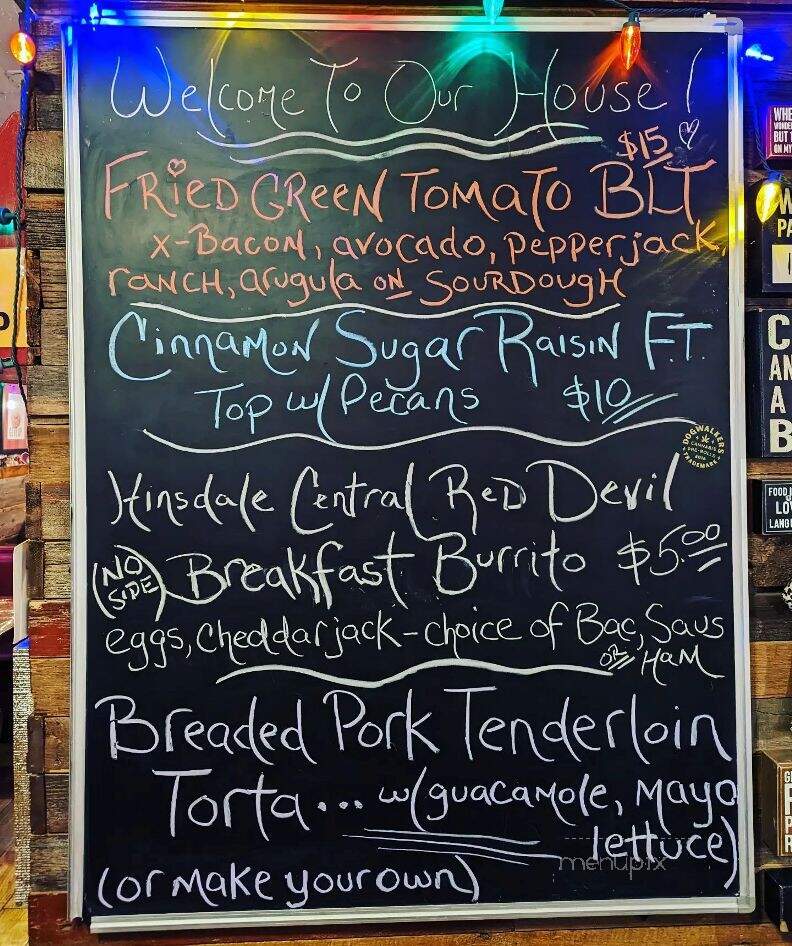 Welcome To Our House!
$15
Fried Green Tomato BLT
x-Bacon, avocado, pepperjack,
ranch, arugula on Sourdough
Cinnamon Sugar Raisin F.T
Top w/ Pecans $10
Hinsdale Central Red Devil
(No Side) Breakfast Burrito $5.00
eggs, cheddarjack - choice of Bac, Saus
or Ham
Breaded Pork Tenderloin
Torta... w/guacamole, mayo
lettuce)
(or make your own)
menupix
DOGWALKERS
CANNABIS
PRE-ROLLS
TRADEMARK
WHE
BUT
ON MY
PA
C
AN
A
B
FOOD
LO
LANG